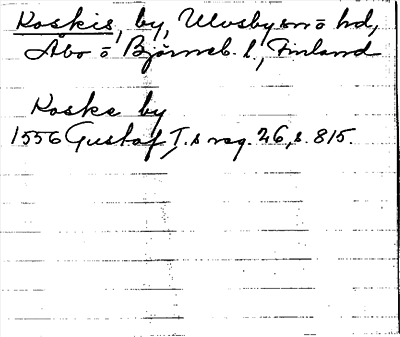 Koskis, by, Ulvsby sn o hd,
Åbo o Björneb. l., Finland
Koske by
1556 Gustaf I.s reg. 26, s. 815.